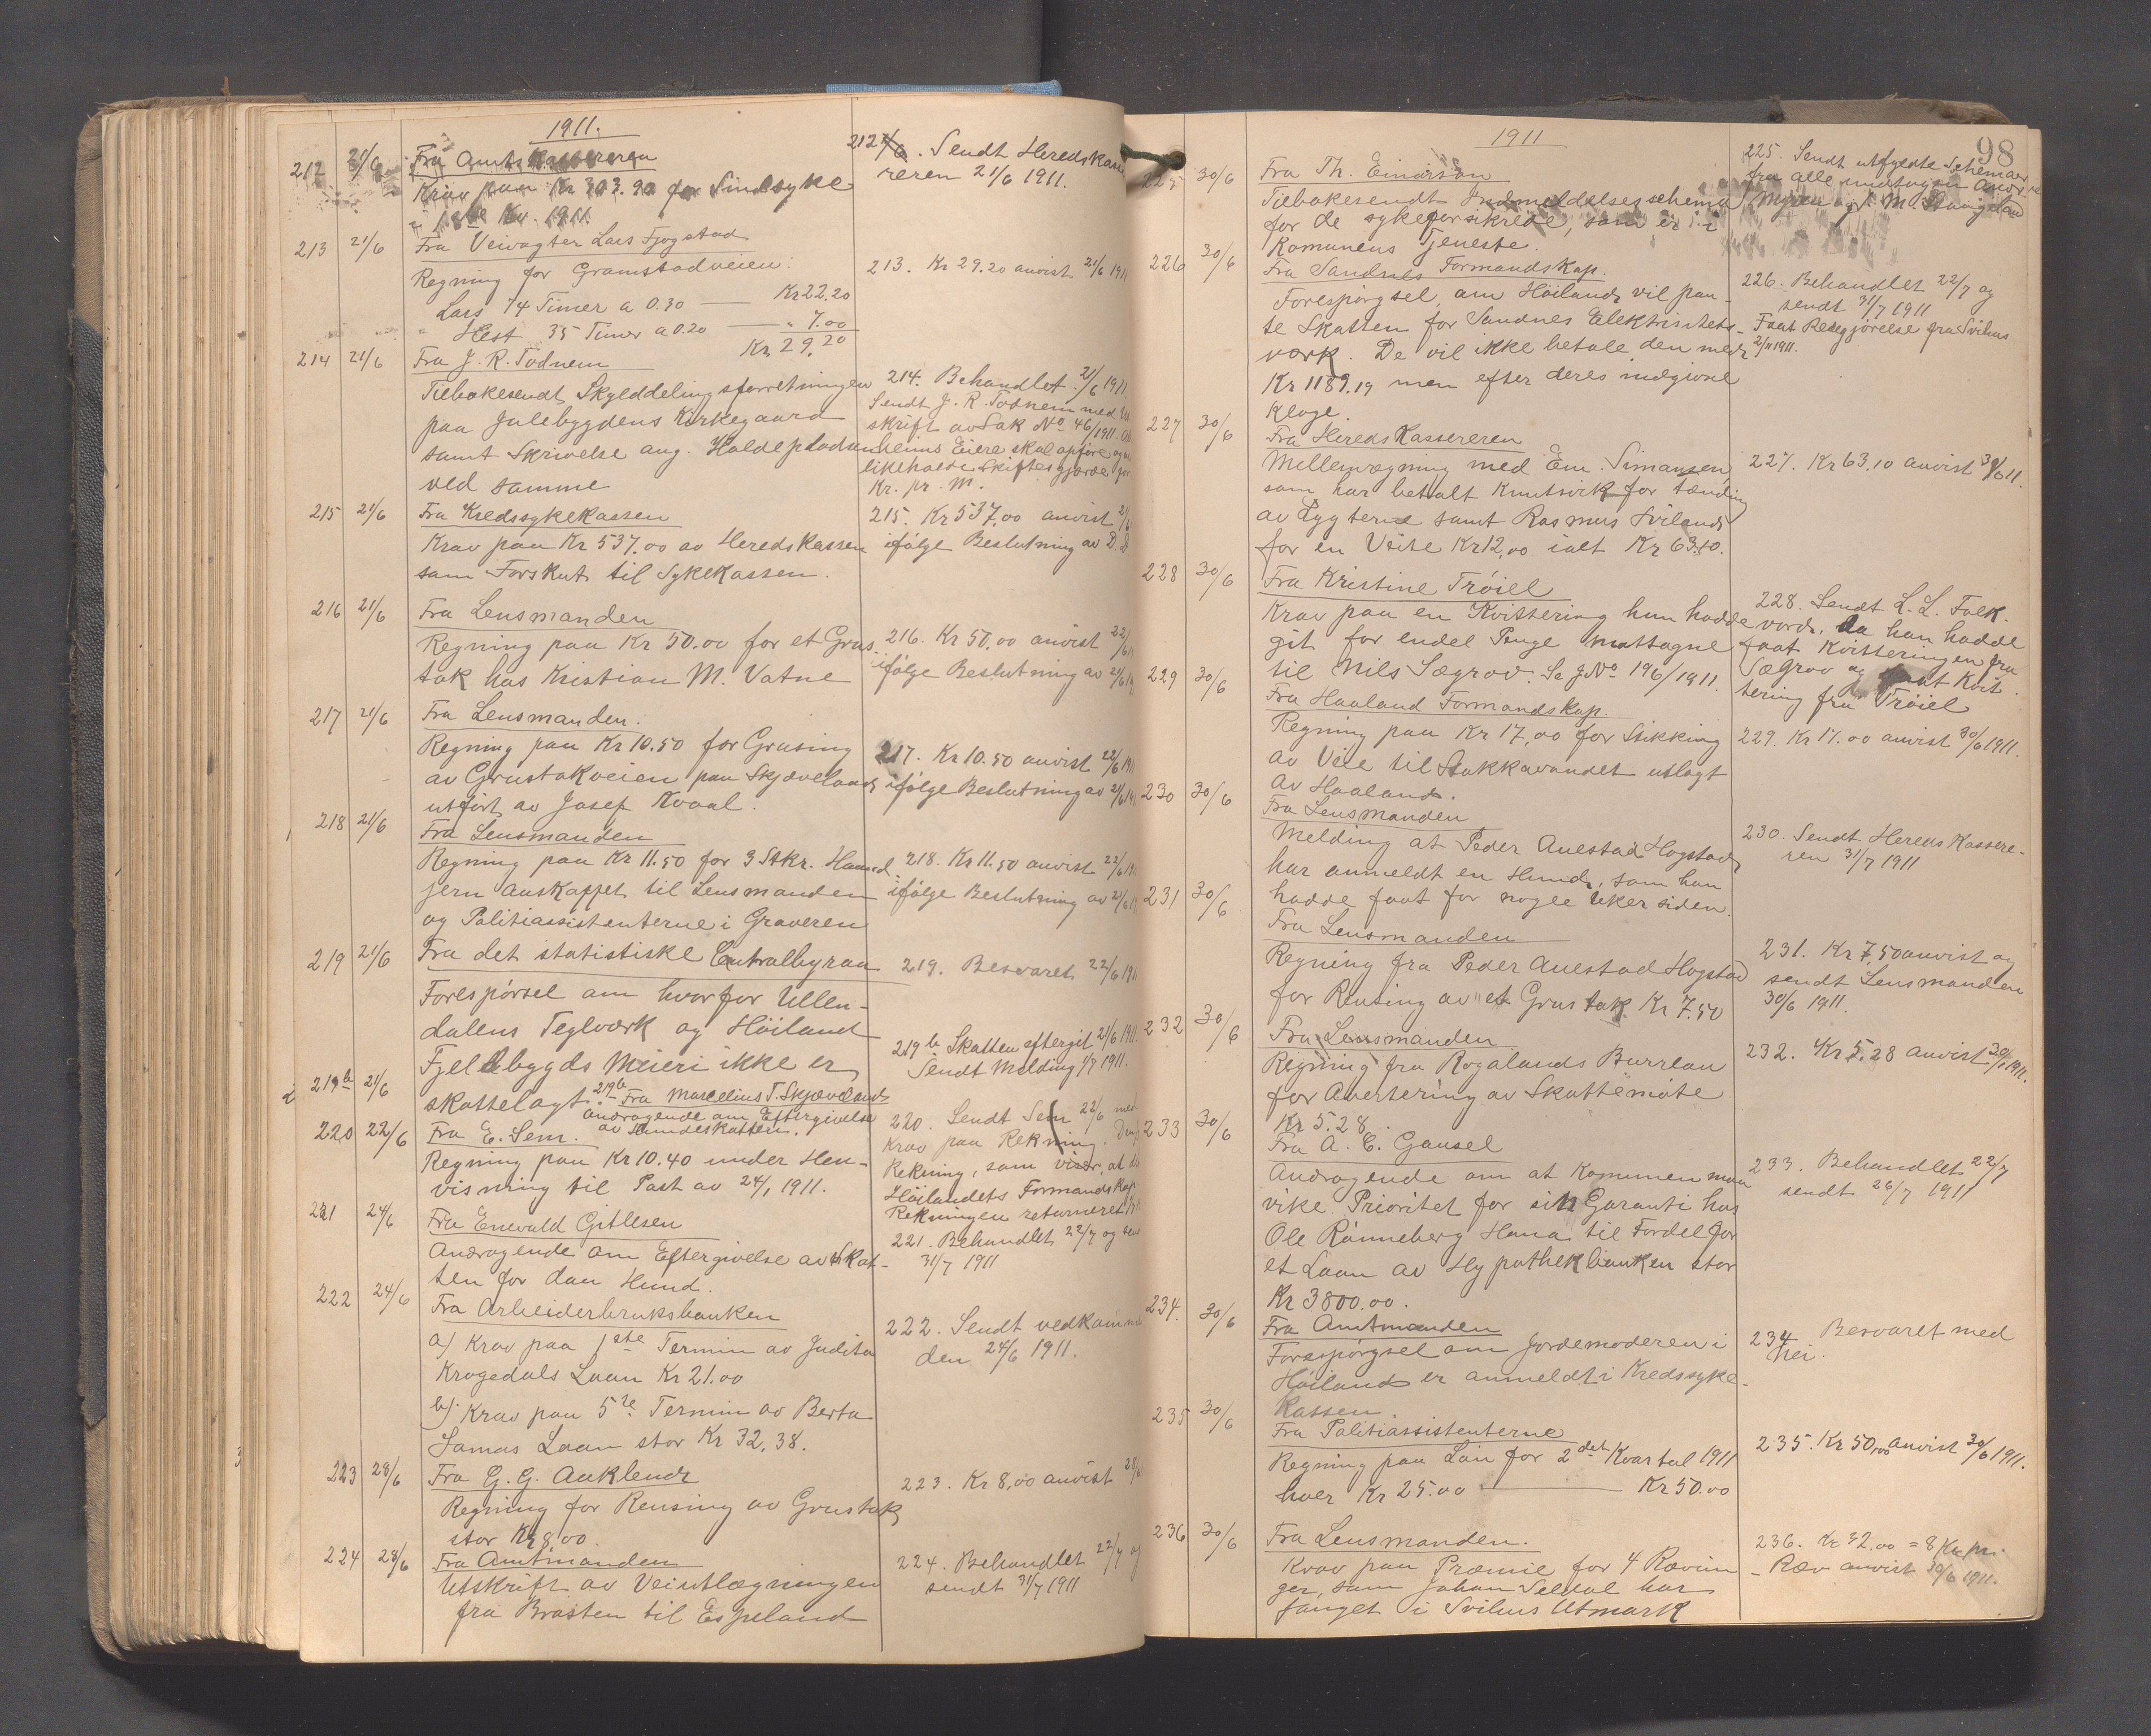 1911.
212 21/6 Fra Amtskassereren
Krav paa Kr 303.90 for Sindsyke
i 1ste Kv. 1911.
213 21/6 Fra Veivagter Lars Fjogstad
Regning for Gramstadveien:
Lars 74 Timer a 0.30 — Kr 22.20
" Hest 35 Timer a 0.20 — " 7.00
Kr 29.20
214 21/6 Fra J. R. Todnem
Tilbakesendt Skylddelingsforretningen
paa Julebygdens Kirkegaard
samt Skrivelse ang. Holdepladsen
ved samme
215 21/6 Fra Kredssykekassen
Krav paa Kr 537.00 av Heredskassen
som Forskut til Sykekassen.
216 21/6 Fra Lensmanden
Regning paa Kr 50.00 for et Grus-
tak hos Kristian M. Vatne
217 21/6 Fra Lensmanden.
Regning paa Kr 10.50 for Grusing
av Grustakveien paa Skjæveland
utført av Josef Kvaal.
218 21/6 Fra Lensmanden
Regning paa Kr 11.50 for 3 Stkr. Haand-
jern anskaffet til Lensmanden
og Politiassistenterne i Graveren
219 21/6 Fra det statistiske Centralbyraa
Forespørsel om hvorfor Ullen-
dalens Teglværk og Höiland
Fjeldbygds Meieri ikke er
skattelagt.
219b 21/6 219b Fra Marcelius T. Skjæveland
Andragende om Eftergivelse
av Hundeskatten.
220 22/6 Fra E. Sem.
Regning paa Kr 10.40 under Hen-
visning til Post av 24/1 1911.
221 24/6 Fra Enevald Gitlesen
Andragende om Eftergivelse av Skat-
ten for dan Hund.
222 24/6 Fra Arbeiderbruksbanken
a) Krav paa 1ste Termin av Judita
Krogedals Laan Kr 21.00
b) Krav paa 5te Termin av Berta
Lamas Laan stor Kr 32,38.
223 28/6 Fra G. G. Auklend
Regning for Rensing av Grustak
stor Kr 8,00
224 28/6 Fra Amtmanden
Utskrift av Veiutlægningen
fra Brasten til Espeland
212 . Sendt Heredskasse
reren 21/6 1911.
213. Kr 29.20 anvist 21/6 1911
214. Behandlet 21/6 1911
Sendt J. R. Todnem med Ut
skrift av Sak No 46/1911.
heims Eiere skal opføre og ve
likeholde Skiftesgjærde for
Kr. pr. M.
215. Kr 537,00 anvist 21/6
ifølge Beslutning av D. D.
216. Kr 50,00 anvist 22/6
ifølge Beslutning av 21/6
217. Kr 10.50 anvist 22/6 1911
ifølge Beslutning av 21/6
218. Kr 11.50 anvist 22/6 1911
ifølge Beslutning av 21/6
219. Besvaret 22/6 1911
219 b Skatten eftergit 21/6 1911.
Sendt Melding 1/7 1911.
220. Sendt Sem 22/6 med
Krav paa Rekning.
Rekning, som viser, at
Höilandets Formandskap
Rekningen returneret
221. Behandlet 22/7 og sen
31/7 1911
222. Sendt vedkomme
den 24/6 1911.
223. Kr 8,00 anvist 28/6
224. Behandlet 22/7 og
sendt 31/7 1911
1911
98
225 30/6 Fra Th. Einarson
Tilbakesendt Indmeldelsesschema
for de sykeforsikrede, som er i
Komunens Tjeneste.
226 30/6 Fra Sandnes Formandskap.
Forespörgsel, om Höiland vil paa-
te Skatten for Sandnes Elektrisitets-
værk. De vil ikke betale den med
Kr 1189.19 men efter deres indgivne
Klage.
227 30/6 Fra Heredskassereren
Mellemregning med Em. Simonsen,
som har betalt Knutsvik for tænding
av Lygterne samt Rasmus Svilands
for en Veite Kr 12,00 ialt Kr 63.10.
228 30/6 Fra Kristine Tröiel
Krav paa en Kvittering hun hadde
git for endel Penge mottagne
til Nils Sægrov. Se J No 196/1911.
229 30/6 Fra Haaland Formandskap.
Regning paa Kr 17,00 for Stikking
av Veie til Stokkavandet utlagt
av Haaland.
230 30/6 Fra Lensmanden
Melding at Peder Auestad Hogstad
har anmeldt en Hund, som han
hadde faat for nogle Uker siden.
231 30/6 Fra Lensmanden
Regning fra Peder Auestad Hogstad
for Rensing av et Grustak Kr 7.50
232 30/6 Fra Lensmanden
Regning fra Rogalands Burreau
for Avertering av Skattemöte
Kr 5.28.
233 30/6 Fra A. C. Gausel
Andragende om at Komunen maa
vike Prioritet for sin Garanti hos
Ole Rönneberg Hana til Fordel for
et Laan av Hypothekbanken stor
Kr 3800.00.
234. 30/6 Fra Amtmanden
Forespörgsel om Jordemoderen i
Höiland er anmeldt i Kredssyke-
kassen
235 30/6 Fra Politiassistenterne
Regning paa Lön for 2det Kvartal 1911
hver Kr 25.00 — Kr 50.00
236 30/6 Fra Lensmanden.
Krav paa Præmie for 4 Rævun
ger, som Johan Seldal har
fanget i Svilus Utmark
225. Sendt utfyldte Schemaer
fra alle undtagen
226. Behandlet 22/7 og
sendt 31/7 1911
Faat Redegjörelse fra Svihus
2/11 1911.
227. Kr 63,10 anvist 30/6 11.
228. Sendt L. L. Folk-
vord, da han hadde
faat Kvitteringen fra
Sægrov og faat Kvit-
tering fra Tröiel
229. Kr 17.00 anvist 30/6 1911.
230. Sendt Hereds Kassere-
ren 31/7 1911
231. Kr 7,50 anvist og
sendt Lensmanden
30/6 1911.
232. Kr 5.28 anvist 30/6 1911.
233. Behandlet 22/7
sendt 26/7 1911
234. Besvaret med
Nei.
235. Kr 50,00 anvist 30/6 1911.
236. Kr 32.00 = 8 Kr. pr.
Ræv anvist 30/6 1911.